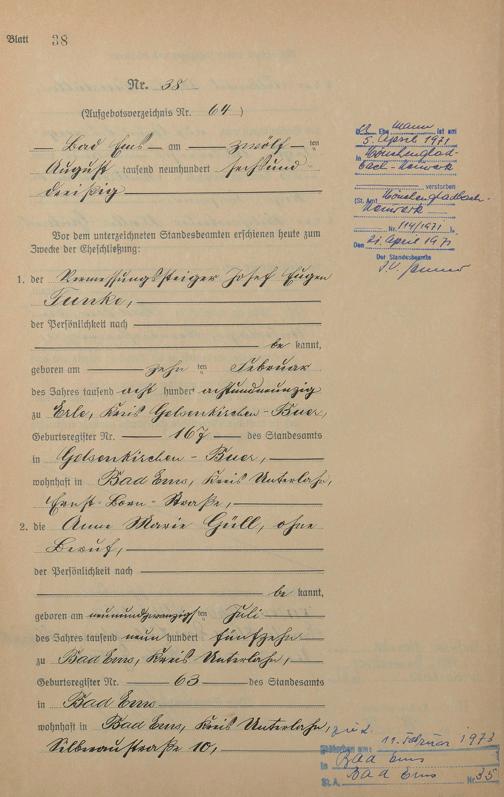 Blatt 38
Nr. 38
(Aufgebotsverzeichnis Nr. 64)
Bad Ems am zwölf ten
August tausend neunhundert sechsund
dreißig
Vor dem unterzeichneten Standesbeamten erschienen heute zum
Zwecke der Eheschließung:
1. der Vermessungssteiger Josef Eugen
Funke,
der Persönlichkeit nach
be kannt,
geboren am zehn ten Februar
des Jahres tausend acht hundert achtundneunzig
zu Erle, Kreis Gelsenkirchen-Buer,
Geburtsregister Nr. 167 des Standesamts
in Gelsenkirchen-Buer,
wohnhaft in Bad Ems, Kreis Unterlahn,
Ernst-Born-Straße,
2. die Anna Marie Güll, ohne
Beruf,
der Persönlichkeit nach
be kannt,
geboren am neunundzwanzigsten Juli
des Jahres tausend neun hundert fünfzehn
zu Bad Ems, Kreis Unterlahn,
Geburtsregister Nr. 63 des Standesamts
in Bad Ems
wohnhaft in Bad Ems, Kreis Unterlahn,
Silberaustraße 10,
Ehemann ist am
5. April 1971
in Mönchenglad-
bach-
verstorben
(St. Amt Mönchengladbach-
Nr. 114/1971).
Den 21. April 1971
Der Standesbeamte
I.V.
Gestorben am: 11. Februar 1973
in Bad Ems
St. A. Bad Ems Nr. 35